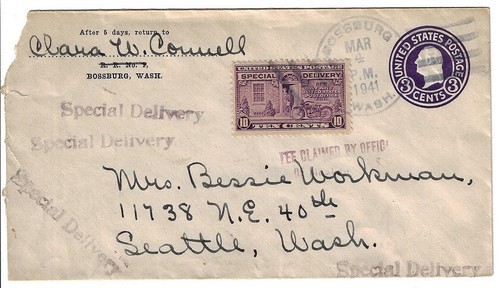 After 5 days, return to
Clara W. Connell
R. R. No. 2,
BOSSBURG, WASH.
UNITED STATES POSTAGE
SPECIAL DELIVERY
10 TEN CENTS 10
BOSSBURG
MAR
4
P.M.
1941
WASH.
UNITED STATES POSTAGE
3 CENTS 3
Special Delivery
Special Delivery
FEE CLAIMED BY OFFIC
Mrs. Bessie Workman,
11738 N.E. 40th
Seattle, Wash.
Special Delivery
Special Delivery